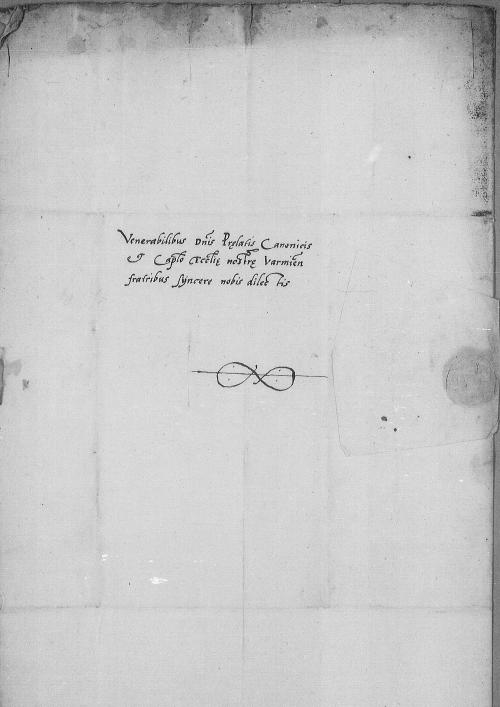 Venerabilibus Dn̄is Prȩlatis Canonicis
& Capl̄o Eccl̄iȩ nostrȩ Varmien̄
fratribus syncere nobis dilectis